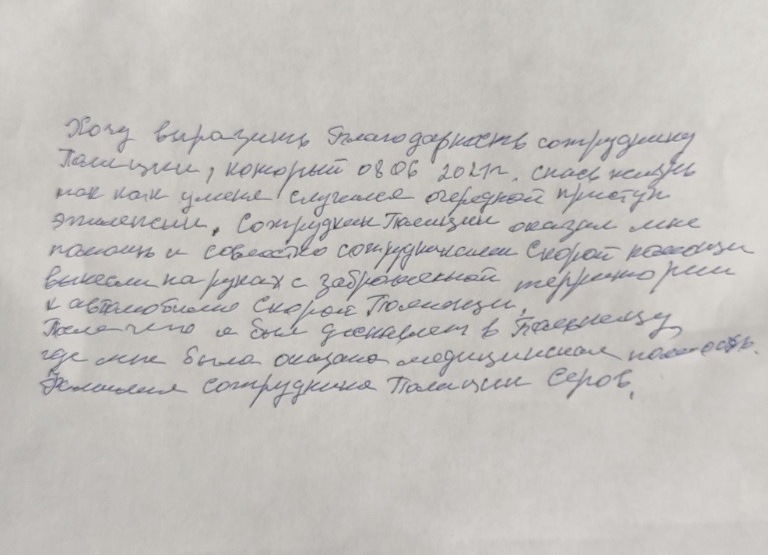 Хочу выразить Благодарность сотруднику
Полиции, который 08 06 2021г. спас жизнь
так как у меня случился очередной приступ
эпилепсии. Сотрудник Полиции оказал мне
помощь и совместно сотрудниками Скорой помощи
вынесли на руках с заброшенной территории
к автомобилю Скорой Помощи,
После чего я был доставлен в Больницу
где мне была оказана медицинская помощь.
Фамилия сотрудника Полиции Серов.